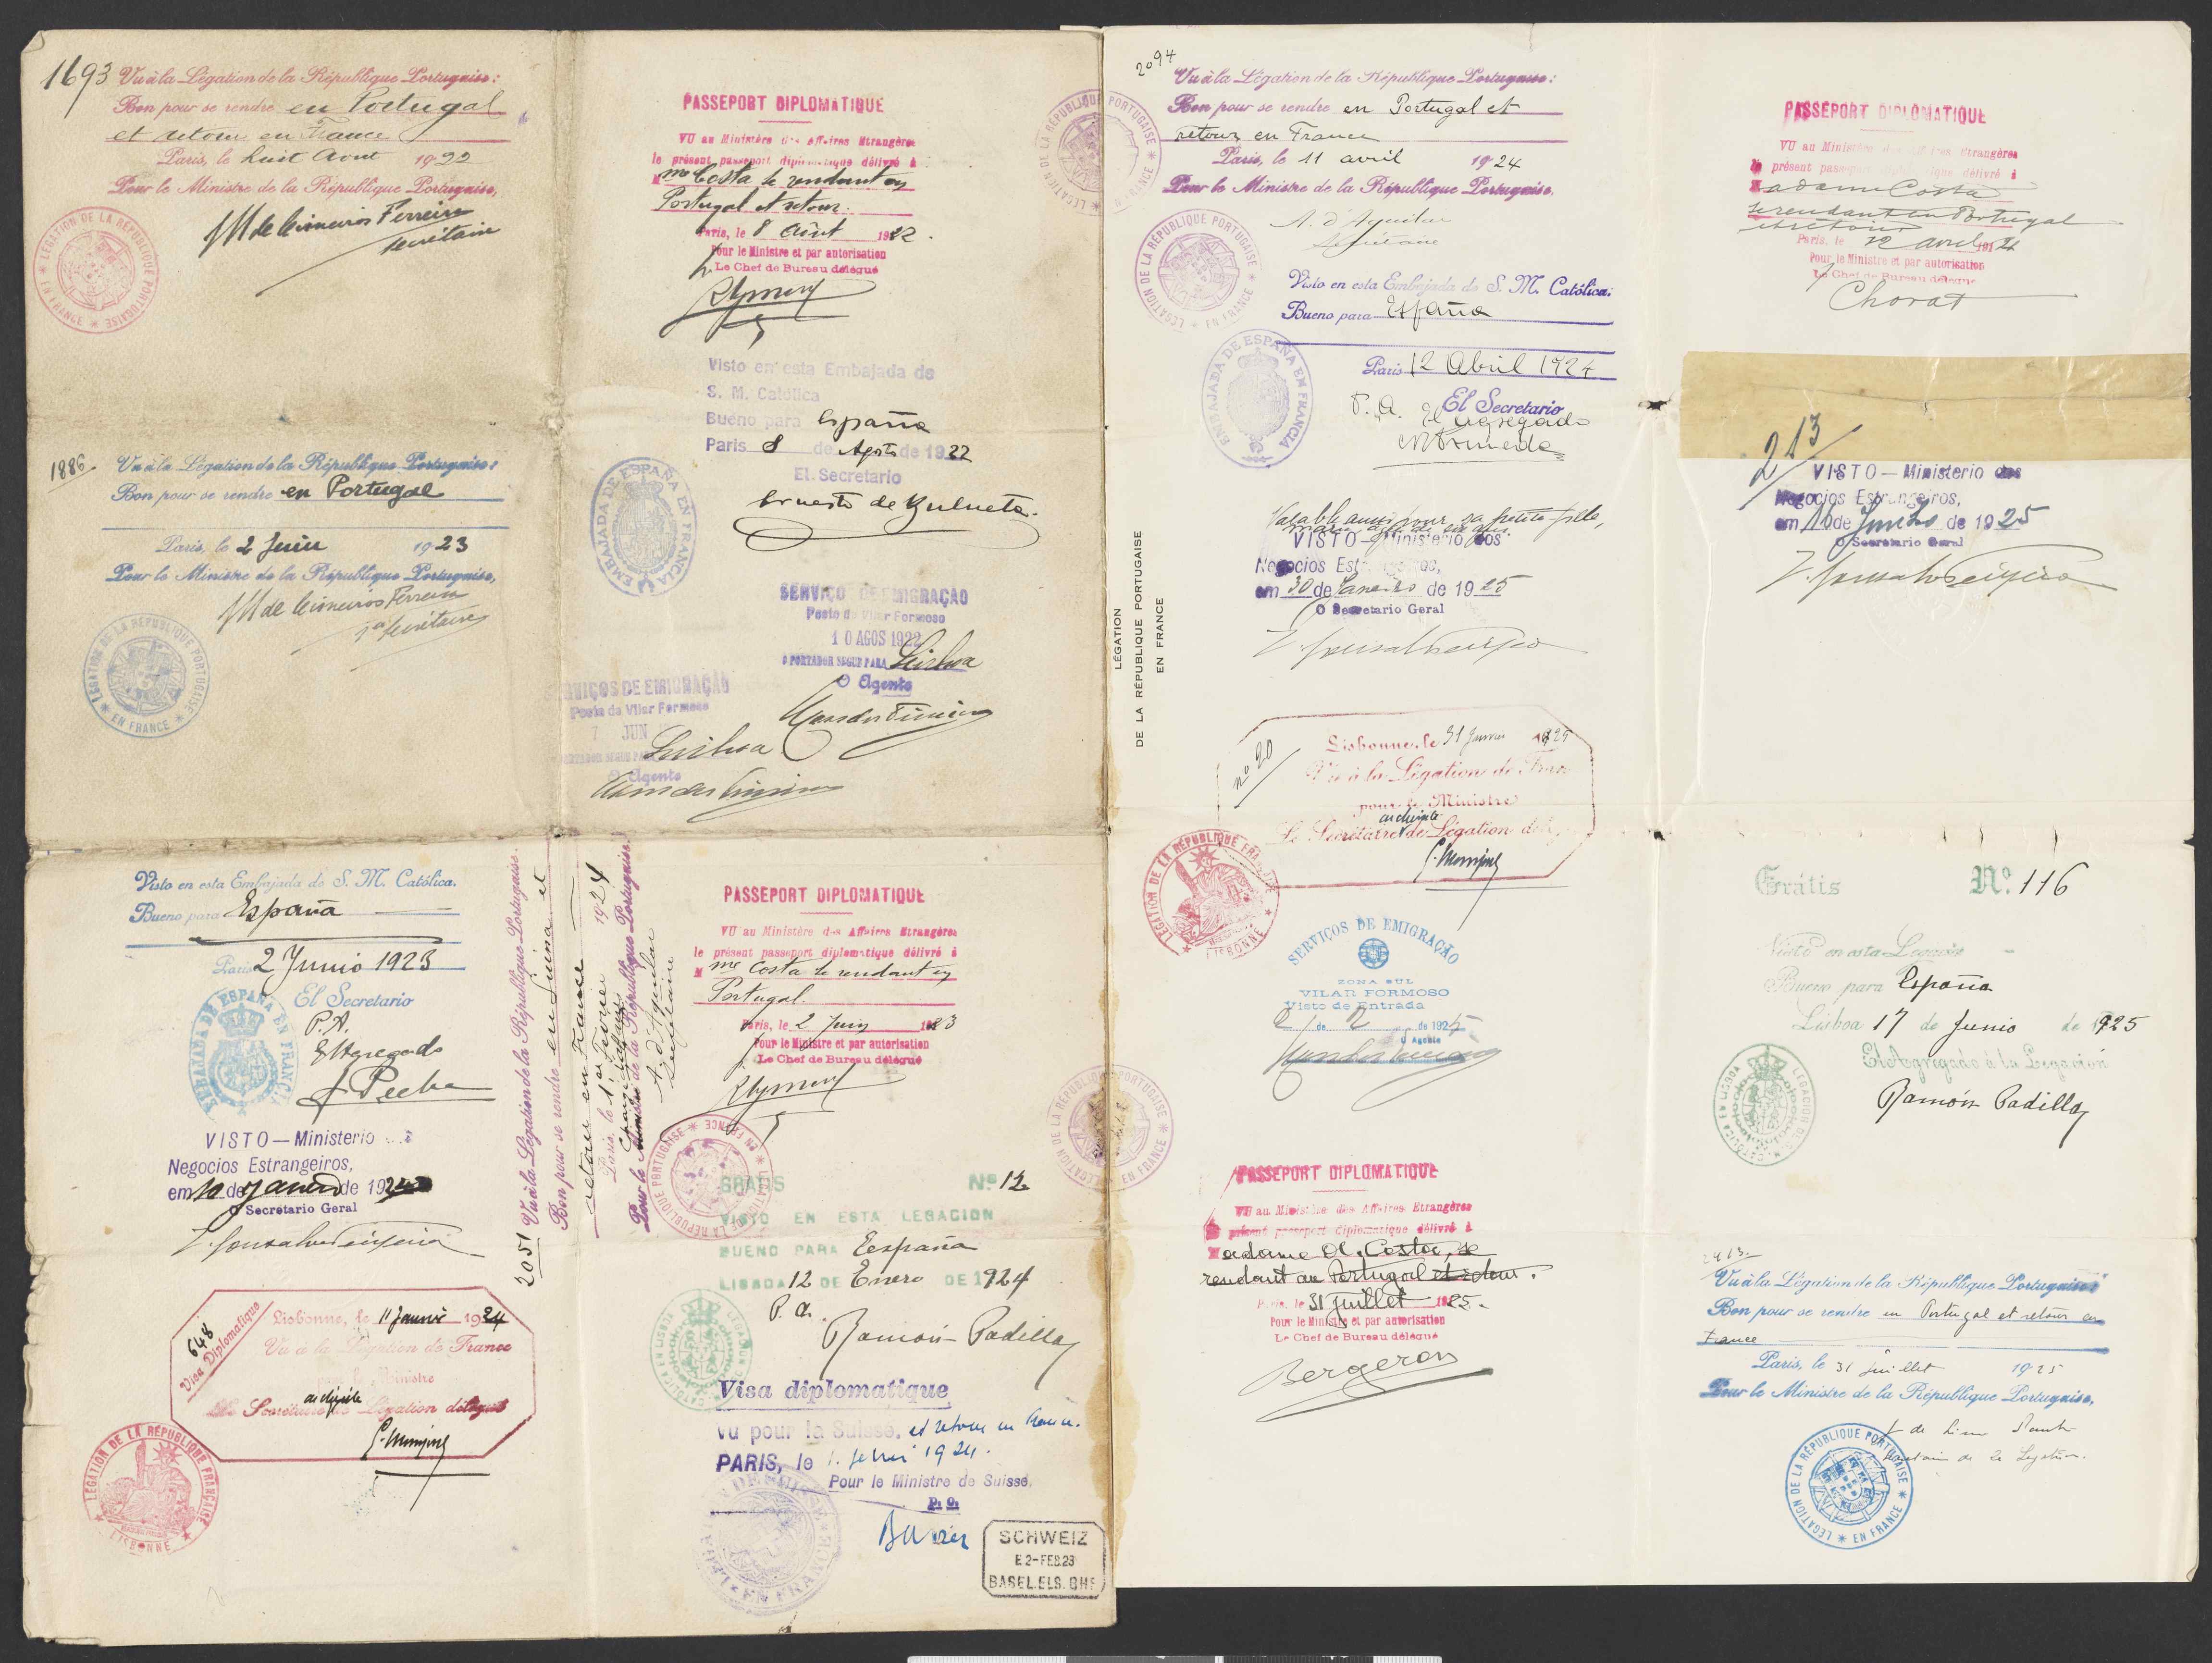 1693 Vu à la Légation de la République Portugaise:
Bon pour se rendre en Portugal
et retour en France
Paris, le huit Aout 1922
Pour le Ministre de la République Portugaise,
Ferreira
secrétaire
LÉGATION DE LA RÉPUBLIQUE PORTUGAISE * EN FRANCE *
PASSEPORT DIPLOMATIQUE
VU au Ministère des Affaires Etrangères
le présent passeport diplomatique délivré à
M me Costa se rendant en
Portugal et retour.
Paris, le 8 Août 1922.
Pour le Ministre et par autorisation
Le Chef de Bureau délégué
Visto en esta Embajada de
S. M. Católica
Bueno para España
Paris 8 de Agosto de 1922
El Secretario
Ernesto de Zulueta.
EMBAJADA DE ESPAÑA EN FRANCIA
SERVIÇO DE EMIGRAÇÃO
Posto de Vilar Formoso
10 AGOS 1922
O PORTADOR SEGUE PARA Lisboa
O Agente
1886 Vu à la Légation de la République Portugaise:
Bon pour se rendre en Portugal
Paris, le 2 Juin 1923
Pour le Ministre de la République Portugaise,
Ferreira
1er secrétaire
LÉGATION DE LA RÉPUBLIQUE PORTUGAISE * EN FRANCE *
SERVIÇOS DE EMIGRAÇÃO
Posto da Vilar Formoso
7 JUN
PORTADOR SEGUE PARA Lisboa
O Agente
Visto en esta Embajada de S. M. Católica.
Bueno para España
Paris 2 Junio 1923
El Secretario
P.A.
El Agregado
EMBAJADA DE ESPAÑA EN FRANCIA
VISTO — Ministerio dos
Negocios Estrangeiros,
em 10 de Janeiro de 1924
O Secretario Geral
648
Visa Diplomatique
Lisbonne, le 11 Janvier 1924
Vu à la Légation de France
pour le Ministre
Le Secrétaire archiviste de Légation délégué
LÉGATION DE LA RÉPUBLIQUE FRANÇAISE * LISBONNE *
2051 Vu à la Légation de la République Portugaise.
Bon pour se rendre en Suisse et
retour en France
Paris, le 1er Février 1924
Pour le Ministre de la République Portugaise.
Chargé d'affaires
A. d'Aguilar
Secrétaire
LÉGATION DE LA RÉPUBLIQUE PORTUGAISE * EN FRANCE *
PASSEPORT DIPLOMATIQUE
VU au Ministère des Affaires Etrangères
le présent passeport diplomatique délivré à
M me Costa se rendant en
Portugal.
Paris, le 2 Juin 1923
Pour le Ministre et par autorisation
Le Chef de Bureau délégué
GRATIS Nº 12
VISTO EN ESTA LEGACION
BUENO PARA España
LISBOA 12 DE Enero DE 1924
P. A.
Ramón Padilla
Visa diplomatique
Vu pour la Suisse, et retour en France.
PARIS, le 1. février 1924.
Pour le Ministre de Suisse,
p. o.
SCHWEIZ
E 2-FEB.23
BASEL.ELS.BHF
2094
Vu à la Légation de la République Portugaise:
Bon pour se rendre en Portugal et
retour en France
Paris, le 11 avril 1924
Pour le Ministre de la République Portugaise.
A. d'Aguilar
Secrétaire
LÉGATION DE LA RÉPUBLIQUE PORTUGAISE * EN FRANCE *
LÉGATION DE LA RÉPUBLIQUE PORTUGAISE * EN FRANCE *
Visto en esta Embajada de S. M. Católica.
Bueno para España
Paris 12 Abril 1924
El Secretario
P. A. El Agregado
EMBAJADA DE ESPAÑA EN FRANCIA
Valable aussi pour sa petite-fille,
VISTO — Ministerio dos
Negocios Estrangeiros,
em 30 de Janeiro de 1925
O Secretario Geral
LÉGATION
DE LA RÉPUBLIQUE PORTUGAISE
EN FRANCE
nº 20
Lisbonne, le 31 Janvier 1925
Vu à la Légation de France
pour le Ministre
Le Secrétaire archiviste de Légation
LÉGATION DE LA RÉPUBLIQUE FRANÇAISE * LISBONNE *
SERVIÇOS DE EMIGRAÇÃO
ZONA SUL
VILAR FORMOSO
Visto de Entrada
2 de 2 de 1925
O Agente
LÉGATION DE LA RÉPUBLIQUE PORTUGAISE * EN FRANCE *
PASSEPORT DIPLOMATIQUE
VU au Ministère des Affaires Etrangères
le présent passeport diplomatique délivré à
Madame Ol. Costa, se
rendant au Portugal et retour.
Paris, le 31 Juillet 1925.
Pour le Ministre et par autorisation
Le Chef de Bureau délégué
Bergeron
PASSEPORT DIPLOMATIQUE
VU au Ministère des Affaires Etrangères
le présent passeport diplomatique délivré à
Madame Costa
se rendant en Portugal
et retour
Paris, le 12 avril 1924
Pour le Ministre et par autorisation
Le Chef de Bureau délégué
Chorat
213
VISTO — Ministerio dos
Negocios Estrangeiros,
em 16 de Junho de 1925
O Secretario Geral
Grátis Nº 116
Visto en esta Legación
Bueno para España
Lisboa 17 de Junio de 1925
El Agregado á la Legación
Ramón Padilla
2413.
Vu à la Légation de la République Portugaise:
Bon pour se rendre en Portugal et retour en
France
Paris, le 31 Juillet 1925
Pour le Ministre de la République Portugaise,
Secrétaire de la Légation.
LÉGATION DE LA RÉPUBLIQUE PORTUGAISE * EN FRANCE *